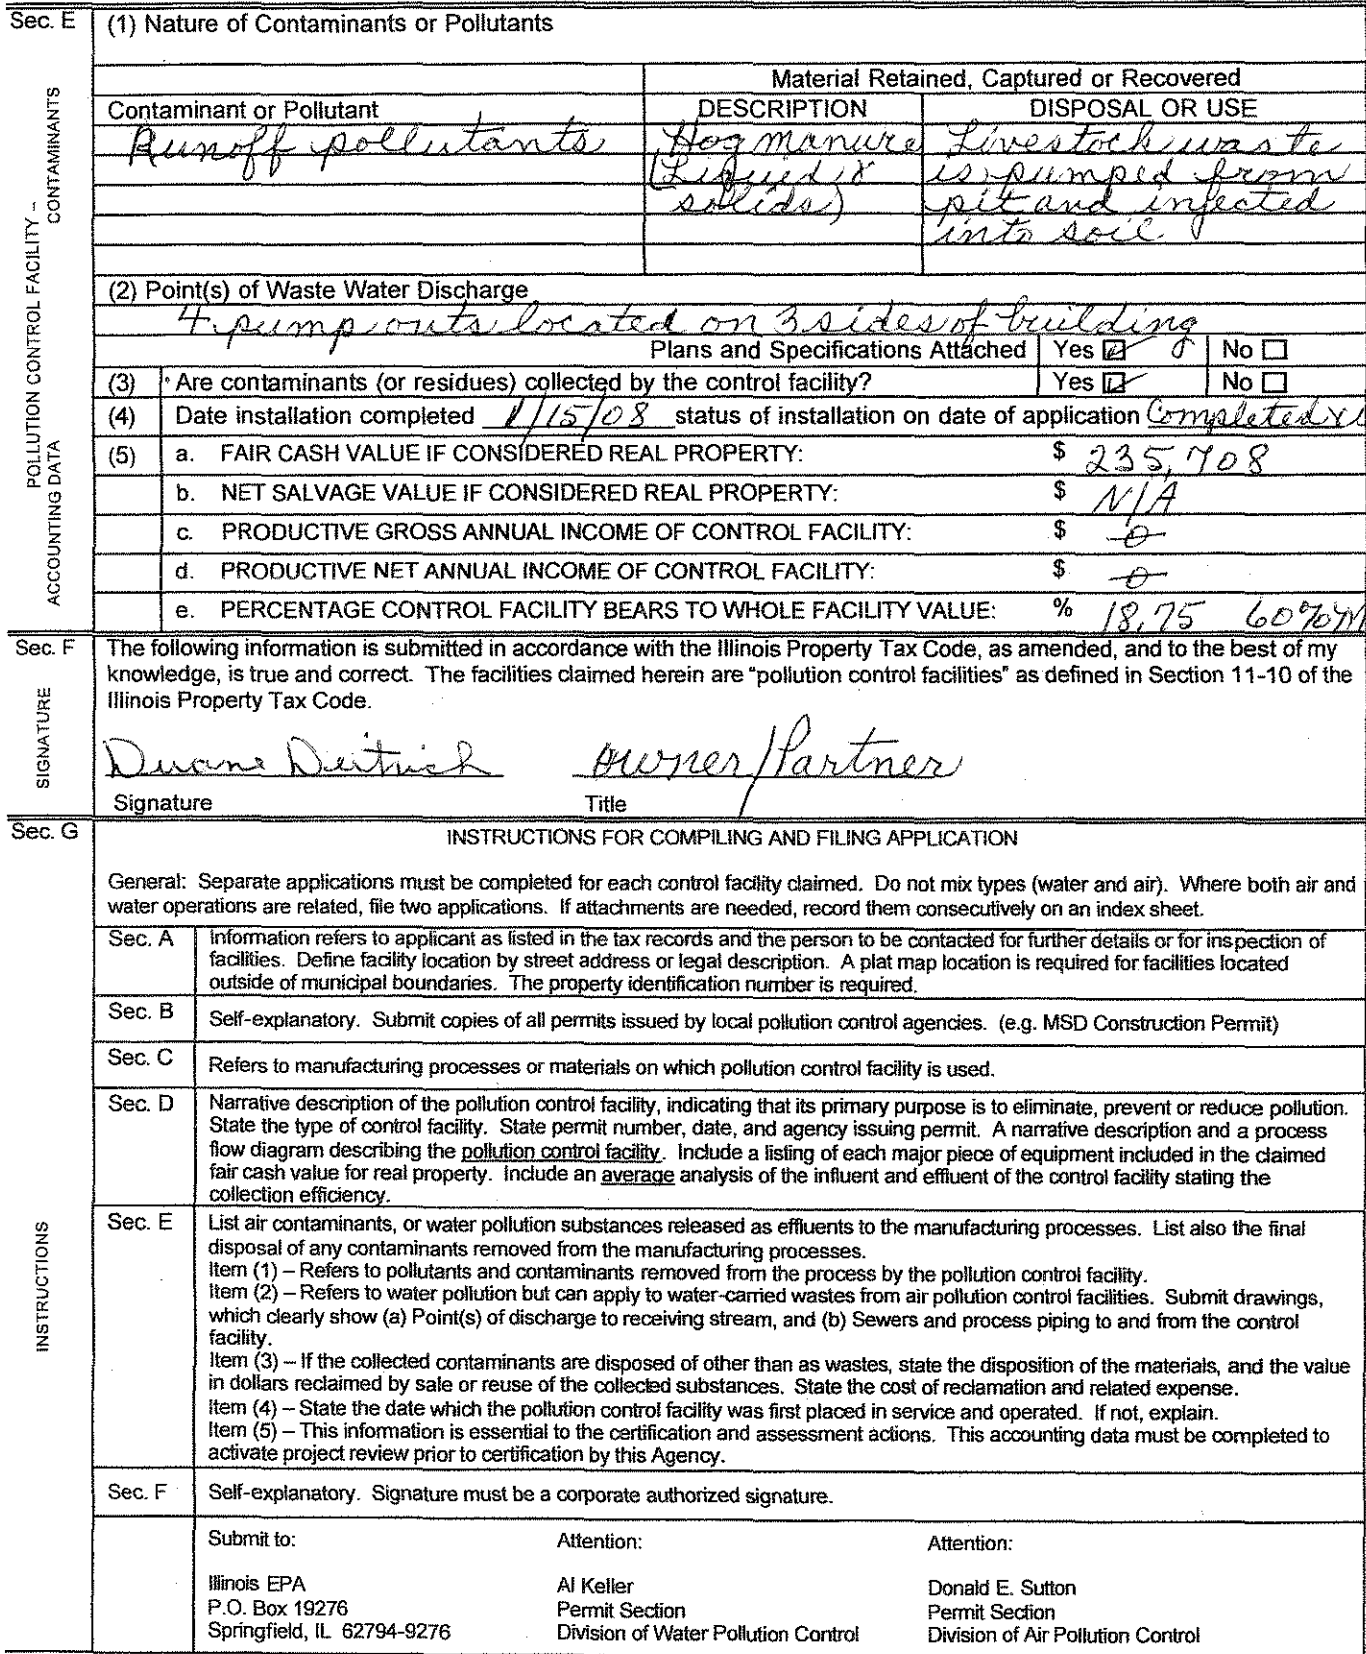 Sec. E
(1) Nature of Contaminants or Pollutants
POLLUTION CONTROL FACILITY –
CONTAMINANTS
ACCOUNTING DATA
Material Retained, Captured or Recovered
Contaminant or Pollutant DESCRIPTION DISPOSAL OR USE
Runoff pollutants Hog manure Livestock waste
(Liquid & is pumped from
solids) pit and injected
into soil.
(2) Point(s) of Waste Water Discharge
4 pump outs located on 3 sides of building
Plans and Specifications Attached Yes ☑ No ☐
(3) Are contaminants (or residues) collected by the control facility? Yes ☑ No ☐
(4) Date installation completed 1/15/08 status of installation on date of application Completed
(5) a. FAIR CASH VALUE IF CONSIDERED REAL PROPERTY: $ 235,708
b. NET SALVAGE VALUE IF CONSIDERED REAL PROPERTY: $ N/A
c. PRODUCTIVE GROSS ANNUAL INCOME OF CONTROL FACILITY: $ 0
d. PRODUCTIVE NET ANNUAL INCOME OF CONTROL FACILITY: $ 0
e. PERCENTAGE CONTROL FACILITY BEARS TO WHOLE FACILITY VALUE: % 18.75 60%
Sec. F
SIGNATURE
The following information is submitted in accordance with the Illinois Property Tax Code, as amended, and to the best of my
knowledge, is true and correct. The facilities claimed herein are "pollution control facilities" as defined in Section 11-10 of the
Illinois Property Tax Code.
Duane Deitrich owner/Partner
Signature Title
Sec. G
INSTRUCTIONS
INSTRUCTIONS FOR COMPILING AND FILING APPLICATION
General: Separate applications must be completed for each control facility claimed. Do not mix types (water and air). Where both air and
water operations are related, file two applications. If attachments are needed, record them consecutively on an index sheet.
Sec. A Information refers to applicant as listed in the tax records and the person to be contacted for further details or for inspection of
facilities. Define facility location by street address or legal description. A plat map location is required for facilities located
outside of municipal boundaries. The property identification number is required.
Sec. B Self-explanatory. Submit copies of all permits issued by local pollution control agencies. (e.g. MSD Construction Permit)
Sec. C Refers to manufacturing processes or materials on which pollution control facility is used.
Sec. D Narrative description of the pollution control facility, indicating that its primary purpose is to eliminate, prevent or reduce pollution.
State the type of control facility. State permit number, date, and agency issuing permit. A narrative description and a process
flow diagram describing the pollution control facility. Include a listing of each major piece of equipment included in the claimed
fair cash value for real property. Include an average analysis of the influent and effluent of the control facility stating the
collection efficiency.
Sec. E List air contaminants, or water pollution substances released as effluents to the manufacturing processes. List also the final
disposal of any contaminants removed from the manufacturing processes.
Item (1) – Refers to pollutants and contaminants removed from the process by the pollution control facility.
Item (2) – Refers to water pollution but can apply to water-carried wastes from air pollution control facilities. Submit drawings,
which clearly show (a) Point(s) of discharge to receiving stream, and (b) Sewers and process piping to and from the control
facility.
Item (3) – If the collected contaminants are disposed of other than as wastes, state the disposition of the materials, and the value
in dollars reclaimed by sale or reuse of the collected substances. State the cost of reclamation and related expense.
Item (4) – State the date which the pollution control facility was first placed in service and operated. If not, explain.
Item (5) – This information is essential to the certification and assessment actions. This accounting data must be completed to
activate project review prior to certification by this Agency.
Sec. F Self-explanatory. Signature must be a corporate authorized signature.
Submit to: Attention: Attention:
Illinois EPA Al Keller Donald E. Sutton
P.O. Box 19276 Permit Section Permit Section
Springfield, IL 62794-9276 Division of Water Pollution Control Division of Air Pollution Control